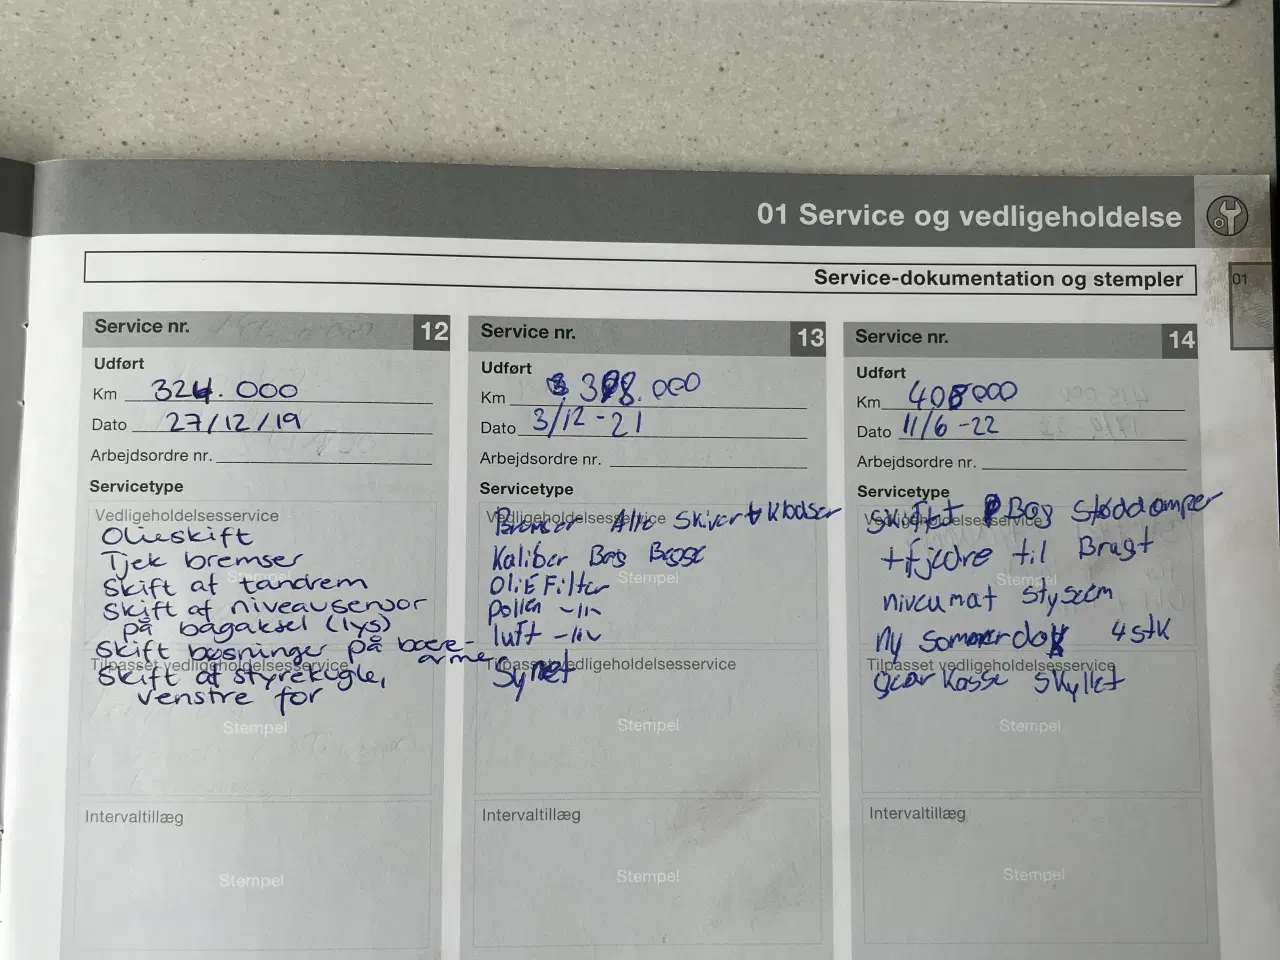 01 Service og vedligeholdelse
01
Service-dokumentation og stempler
Service nr. 12
Udført
Km 324.000
Dato 27/12/19
Arbejdsordre nr.
Servicetype
Vedligeholdelsesservice
Olieskift
Tjek bremser
Stempel
Skift af tandrem
Skift af niveausensor
på bagaksel (lys)
Skift bøsninger på bære-
arme
Tilpasset vedligeholdelsesservice
Skift af styrekugle,
venstre for
Stempel
Intervaltillæg
Stempel
Service nr. 13
Udført
Km 398.000
Dato 3/12-21
Arbejdsordre nr.
Servicetype
Vedligeholdelsesservice
Bremser Alle Skiver + klodser
Kaliber Bag Begge
Stempel
OliE Filter
pollen -11-
luft -11-
Tilpasset vedligeholdelsesservice
Synet
Stempel
Intervaltillæg
Stempel
Service nr. 14
Udført
Km 408000
Dato 11/6-22
Arbejdsordre nr.
Servicetype
Vedligeholdelsesservice
skiftet Bag støddamper
+ fjedre til Brugt
Stempel
niveumat
ny 4 stk
Tilpasset vedligeholdelsesservice
gear kasse skyllet
Stempel
Intervaltillæg
Stempel